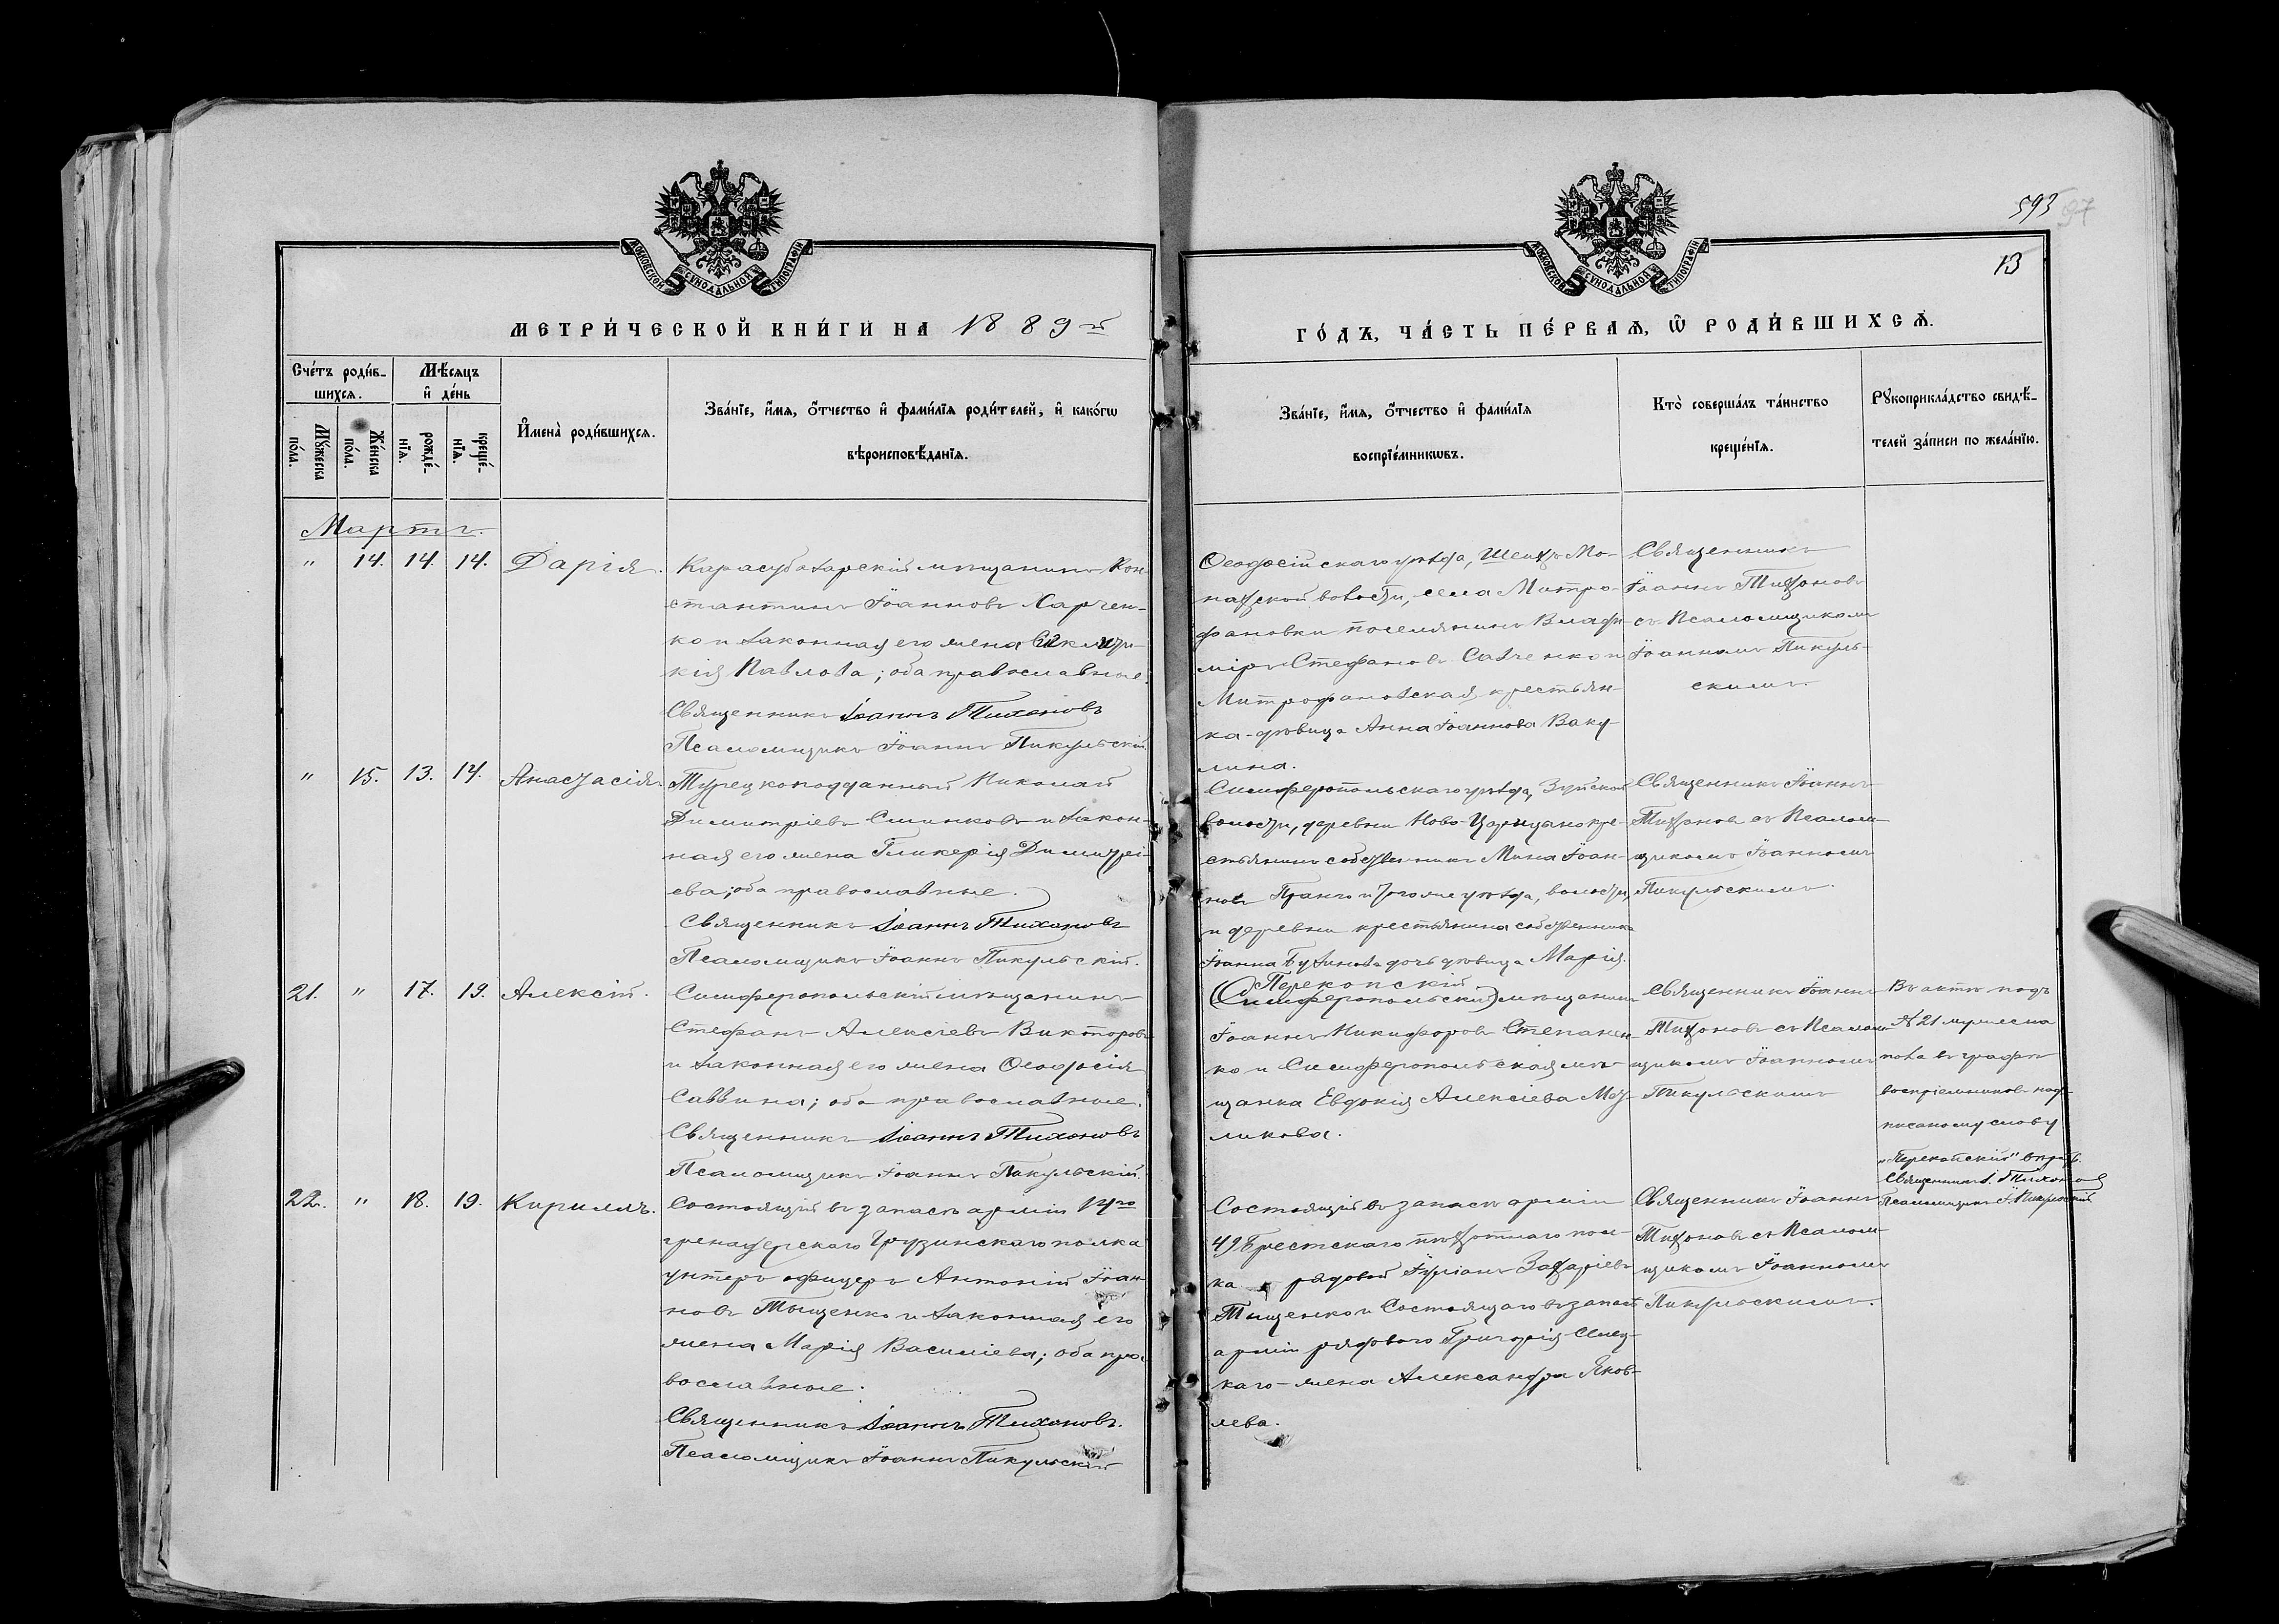 593 97
13
МОСКОВСКОЙ СѴНОДАЛЬНОЙ ТИПОГРАФІИ
МОСКОВСКОЙ СѴНОДАЛЬНОЙ ТИПОГРАФІИ
МЕТРИ́ЧЕСКОЙ КНИ́ГИ НА 1889й
ГО́ДЪ, ЧА́СТЬ ПЕ́РВАѦ, Ѿ РОДИ́ВШИХСѦ.
Сче́тъ роди́в-
шихся.
Мѣ́сяцъ
и҆ де́нь
Мꙋ́жеска
по́ла.
Же́нска
по́ла.
рожде́-
нїя.
креще́-
нїя.
И҆мена̀ роди́вшихся.
Зва́нїе, и҆́мя, о҆́тчество и҆ фами́лїя роди́телей, и҆ како́гѡ
вѣроисповѣ́данїя.
Зва́нїе, и҆́мя, о҆́тчество и҆ фами́лїя
воспрїе́мникѡвъ.
Кто̀ соверша́лъ та́инство
креще́нїя.
Рꙋкоприкла́дство свидѣ́-
телей за́писи по жела́нїю.
Мартъ.
" 14. 14. 14. Дарія.
Карасубазарскій мѣщанинъ Кон-
стантинъ Іоанновъ Харчен-
ко и законная его жена
кія Павлова; оба православные.
Священникъ Іоаннъ Тихоновъ
Псаломщикъ Іоаннъ Пикульскій
Ѳеодосійскаго уѣзда, Шейхъ-Мо-
найской волости, села Митро-
фановки поселянинъ Влади-
міръ Стефановъ Савченко и
Митрофановская крестьян-
ка-дѣвица Анна Іоаннова Ваку-
лина.
Священникъ
Іоаннъ Тихоновъ
съ Псаломщикомъ
Іоанномъ Пикуль-
скимъ
" 15. 13. 14. Анастасія.
Турецкоподданный Николай
Димитріевъ Синиковъ и закон-
ная его жена Гликерія Димитрі-
ева; оба православные.
Священникъ Іоаннъ Тихоновъ
Псаломщикъ Іоаннъ Пикульскій.
Симферопольскаго уѣзда, Зуйской
волости, деревни Ново-Царицыно кре-
стьянинъ собственникъ Мина Іоан-
новъ и того же уѣзда, волости,
и деревни крестьянина собственника
Іоанна дочь дѣвица Марія.
Священникъ Іоаннъ
Тихоновъ съ Псалом-
щикомъ Іоанномъ
Пикульскимъ.
21. " 17. 19. Алексій.
Симферопольскій мѣщанинъ
Стефанъ Алексіевъ Викторовъ
и законная его жена Ѳеодосія
Саввина; оба православные.
Священникъ Іоаннъ Тихоновъ
Псаломщикъ Іоаннъ Пикульскій.
Перекопскій
(Симферопольскій) мѣщанинъ
Іоаннъ Никифоровъ Степанен-
ко и Симферопольская мѣ-
щанка Евдокія Алексіева
ликова.
Священникъ Іоаннъ
Тихоновъ съ Псалом-
щикомъ Іоанномъ
Пикульскимъ
Въ актѣ подъ
№ 21 мужеска
пола въ графѣ
воспріемниковъ над-
писаному слову
„Перекопскій"
Священникъ І. Тихоновъ
Псаломщикъ І. Пикульскій
22. " 18. 19. Кириллъ.
Состоящій въ запасѣ арміи 14го
гренадерскаго Грузинскаго полка
унтеръ офицеръ Антоній Іоан-
новъ Тыщенко и законная его
жена Марія Василіева; оба пра-
вославные.
Священникъ Іоаннъ Тихоновъ.
Псаломщикъ Іоаннъ Пикульскій
Состоящій въ запасѣ арміи
49 Брестскаго пѣхотнаго пол-
ка рядовой Іуліанъ Захаріевъ
Тищенко и Состоящаго въ запасѣ
арміи рядового Григорія
каго-жена Александра Яков-
лева.
Священникъ Іоаннъ
Тихоновъ съ Псалом-
щикомъ Іоанномъ
Пикульскимъ.